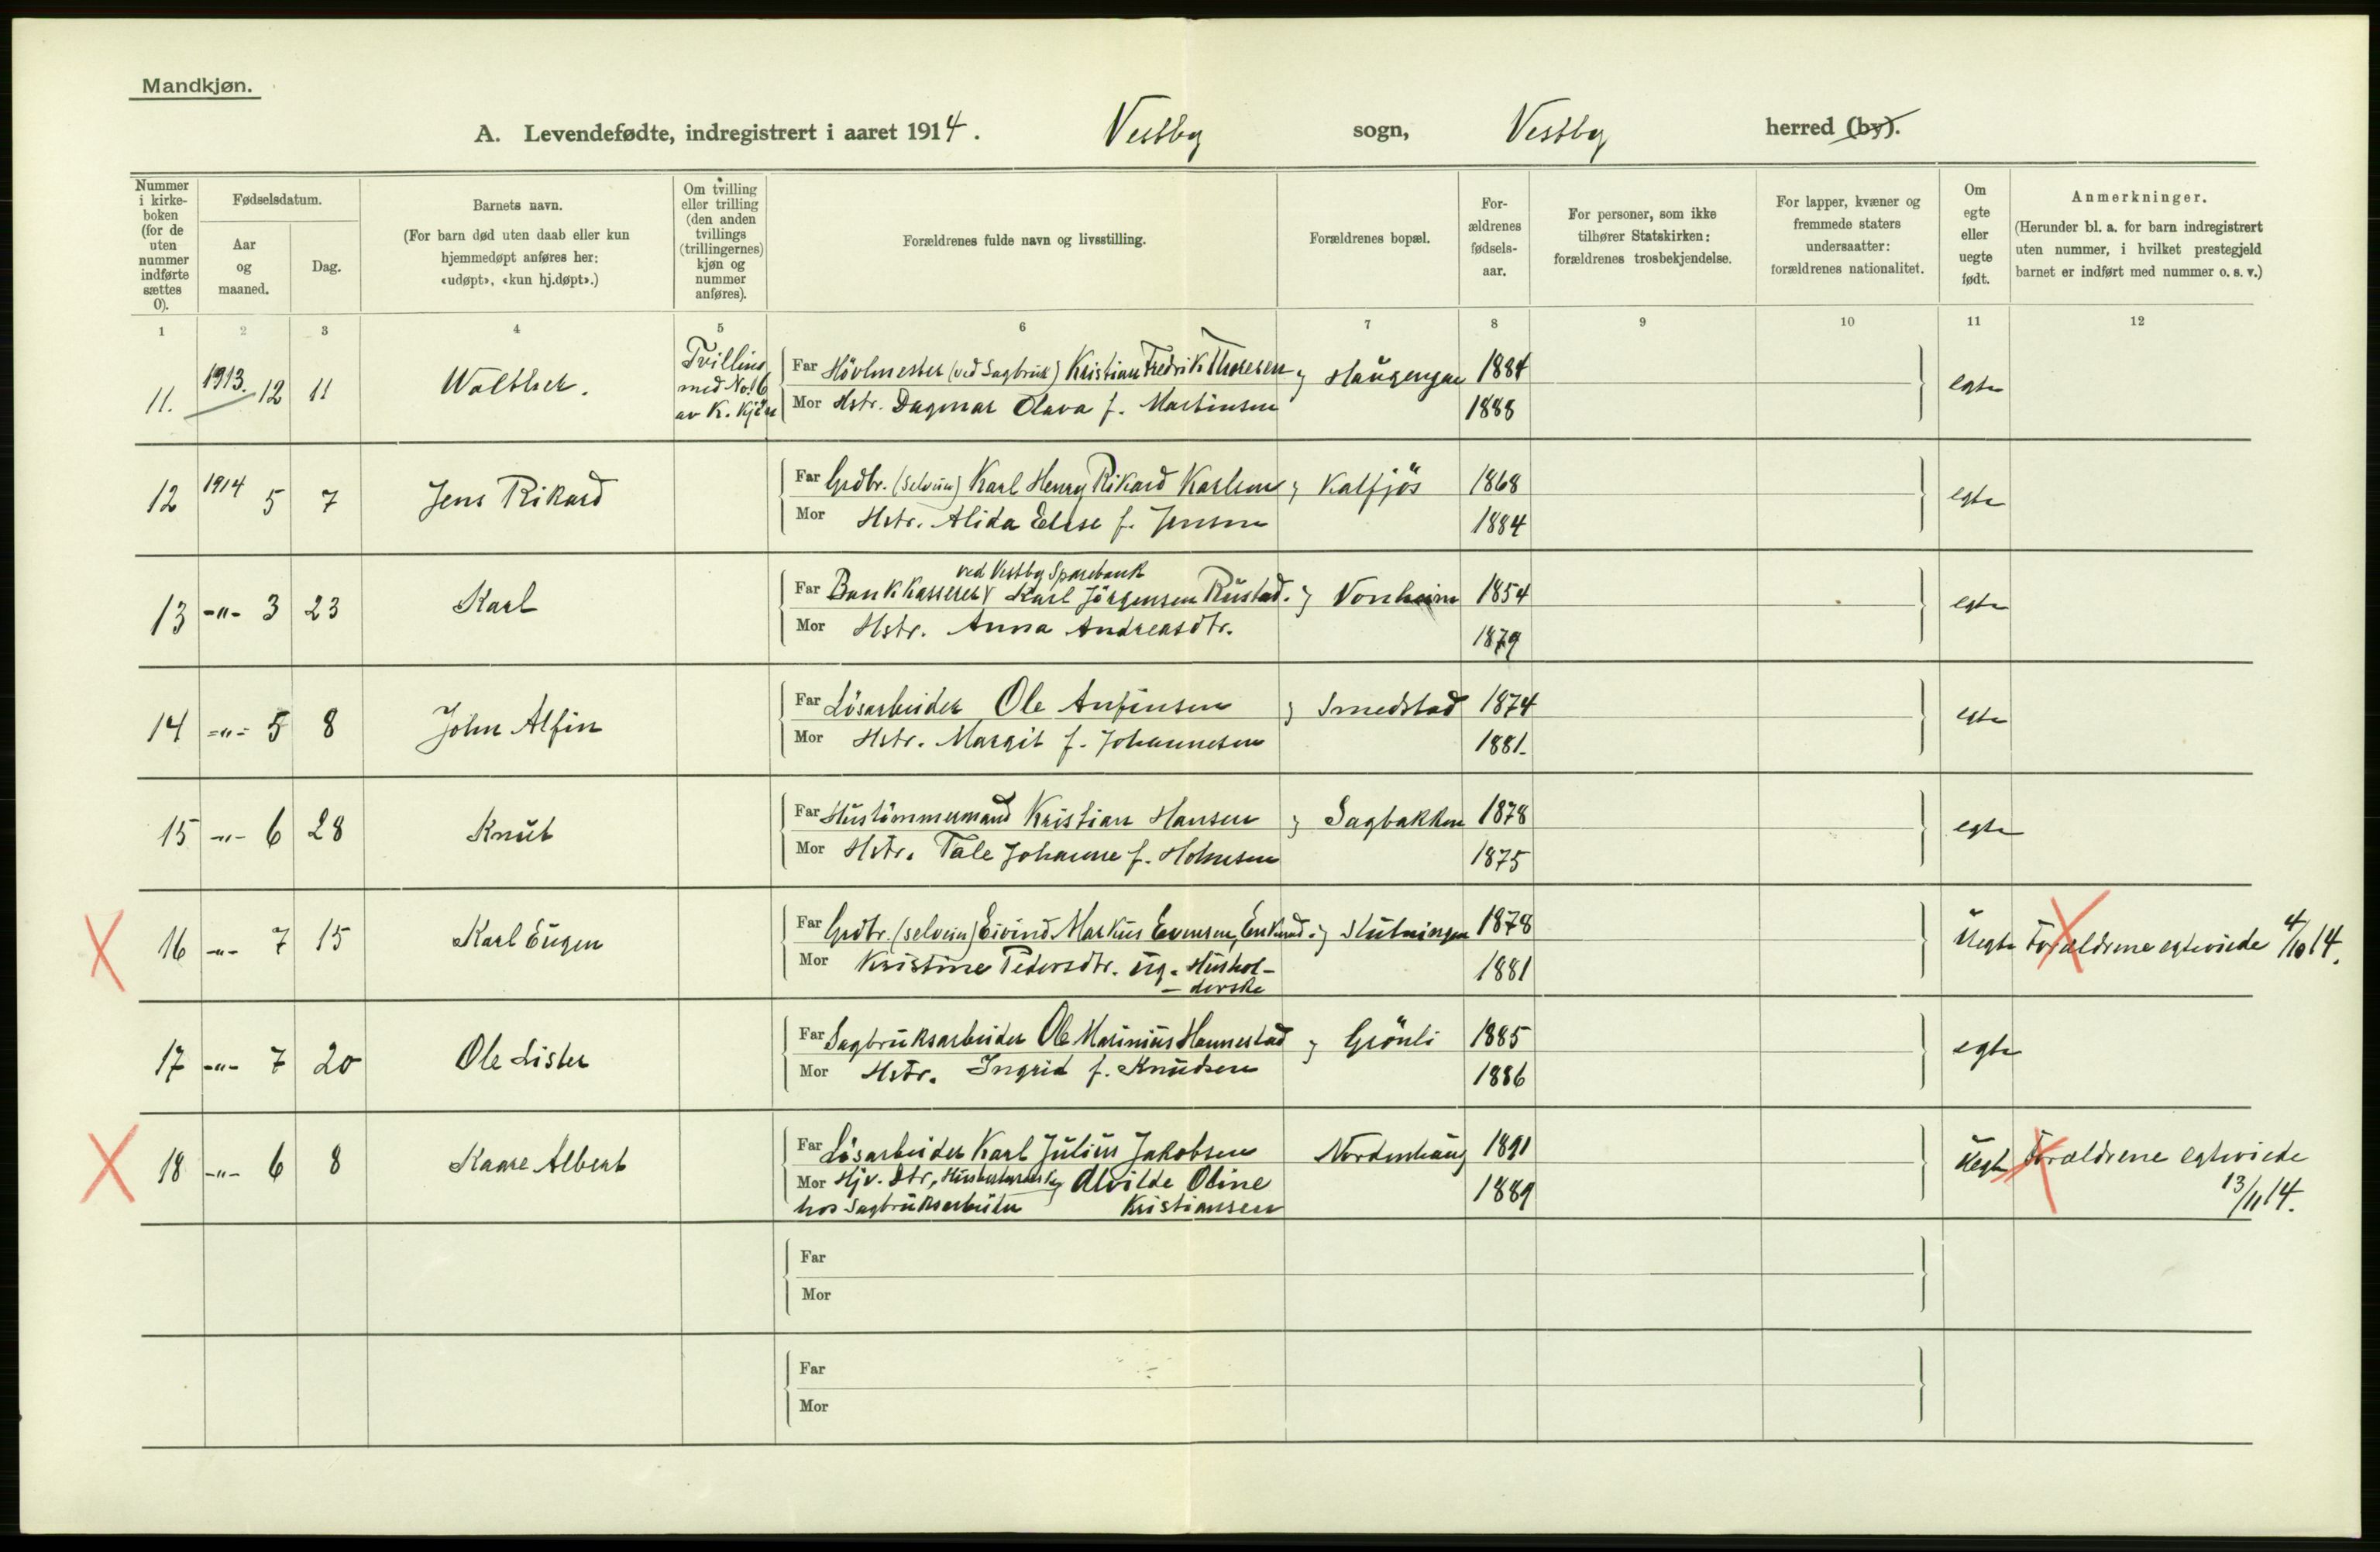 Mandkjøn.
A. Levendefødte, indregistrert i aaret 1914. Vestby sogn, Vestby herred (by).
Nummer i kirke-boken (for de uten nummer indførte sættes 0).
Fødselsdatum.
Aar og maaned.
Dag.
Barnets navn.
(For barn død uten daab eller kun hjemmedøpt anføres her: «udøpt», «kun hj.døpt».)
Om tvilling eller trilling (den anden tvillings (trillingernes) kjøn og nummer anføres).
Forældrenes fulde navn og livsstilling.
Forældrenes bopæl.
For-ældrenes fødsels-aar.
For personer, som ikke tilhører Statskirken: forældrenes trosbekjendelse.
For lapper, kvæner og fremmede staters undersaatter: forældrenes nationalitet.
Om egte eller uegte født.
Anmerkninger.
(Herunder bl. a. for barn indregistrert uten nummer, i hvilket prestegjeld barnet er indført med nummer o. s. v.)
1 2 3 4 5 6 7 8 9 10 11 12
11. 1913. 12 11 Walther. Tvilling med No. 6 av K. Kjøn Far Hövlmester (ved Sagbruk) Kristian Fredrik Thoresen, Haugengen 1884 egte
Mor Hstr. Dagmar Olava f. Martinsen 1888
12 1914 5 7 Jens Rikard Far Grdbr. (selveier) Karl Henry Rikard Karlsen, Kalfjös 1868 egte
Mor Hstr. Alida Elise f. Jensen 1884
13 -"- 3 23 Karl Far Bankkasserer v ved Vestby Sparebank Karl Jörgensen Rustad., Vonheim 1854 egte
Mor Hstr. Anna Andreasdtr. 1879
14 -"- 5 8 John Alfin Far Lösarbeider Ole Anfinsen, Smedstad 1874 egte
Mor Hstr. Margit f. Johannesen 1881.
15 -"- 6 28 Knut Far Hustömmermand Kristian Hansen, Sagbakken 1878 egte
Mor Hstr. Tale Johanne f. Holmsen 1875
16 -"- 7 15 Karl Eugen Far Grdbr. (selveier) Eivind Markus Evensen, Enkmd., Slutningen 1878 Uegte Forældrene egteviede 4/10 14.
Mor Kristine Pedersdtr. ug. Hushol-
derske 1881
17 -"- 7 20 Ole Lister Far Sagbruksarbeider Ole Marinius Hennestad, Grönli 1885 egte
Mor Hstr. Ingrid f. Knudsen 1886
18 -"- 6 8 Kaare Albert Far Lösarbeider Karl Julius Jakobsen Nordenhaug 1891 Uegte Forældrene egteviede 13/11 14.
Mor Hjv. Dtr, Alvilde Oline 1889
hos Sagbruksarbeider Kristiansen
Far
Mor
Far
Mor